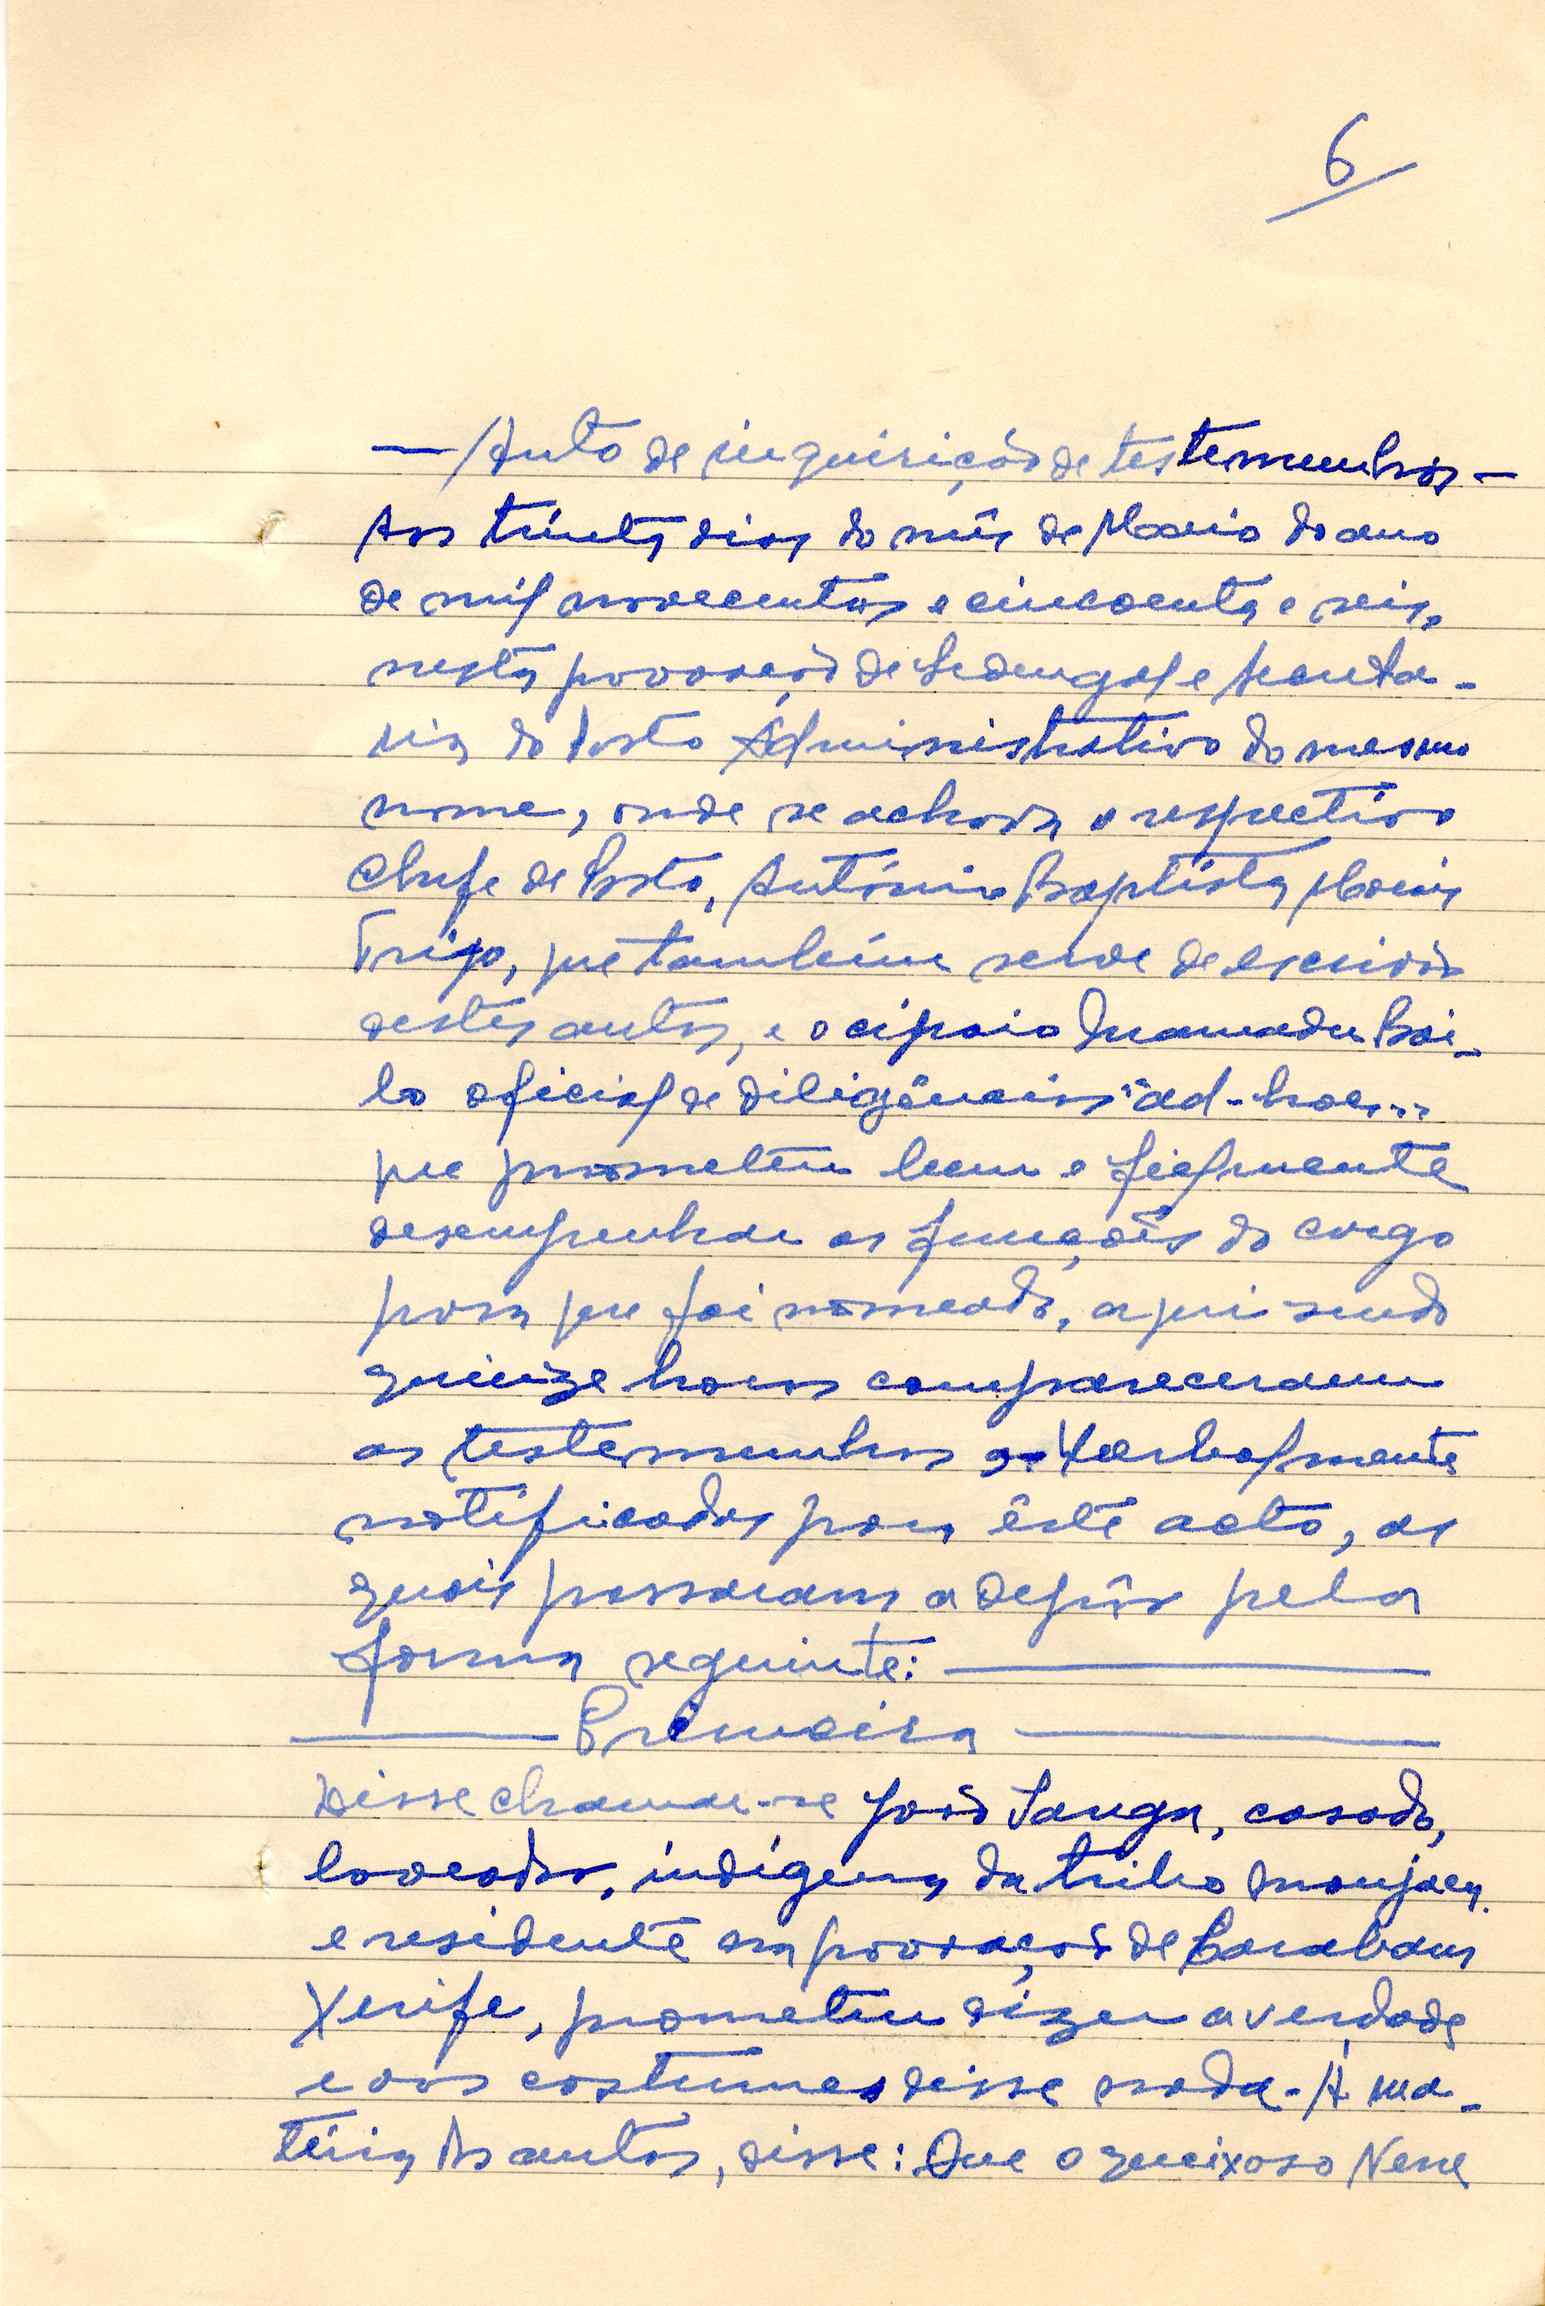 6
— Auto de inquirição de testemunhas —
Aos trinta dias do mês de Maio do ano
de mil novecentos e cincoenta e seis,
nesta povoação de Sedengal e Secreta-
ria do Posto Administrativo do mesmo
nome, onde se achava o respectivo
Chefe de Posto, António Baptista
Trigo, que também serve de escrivão
destes autos, e o cipaio Mamadu Bai-
lo oficial de diligências "ad-hoc"
que prometeu bem e fielmente
desempenhar as funções do cargo
para que foi nomeado, aqui sendo
quinze horas compareceram
as testemunhas verbalmente
notificadas para êste acto, as
quais passaram a depôr pela
forma seguinte: —
— Primeira —
Disse chamar-se João Sanga, casado,
lavrador, indígena da tribo Manjaca,
e residente na povoação de
Xerife, prometeu dizer a verdade
e aos costumes disse nada. - Á ma-
téria dos autos, disse: Que o queixoso Nene